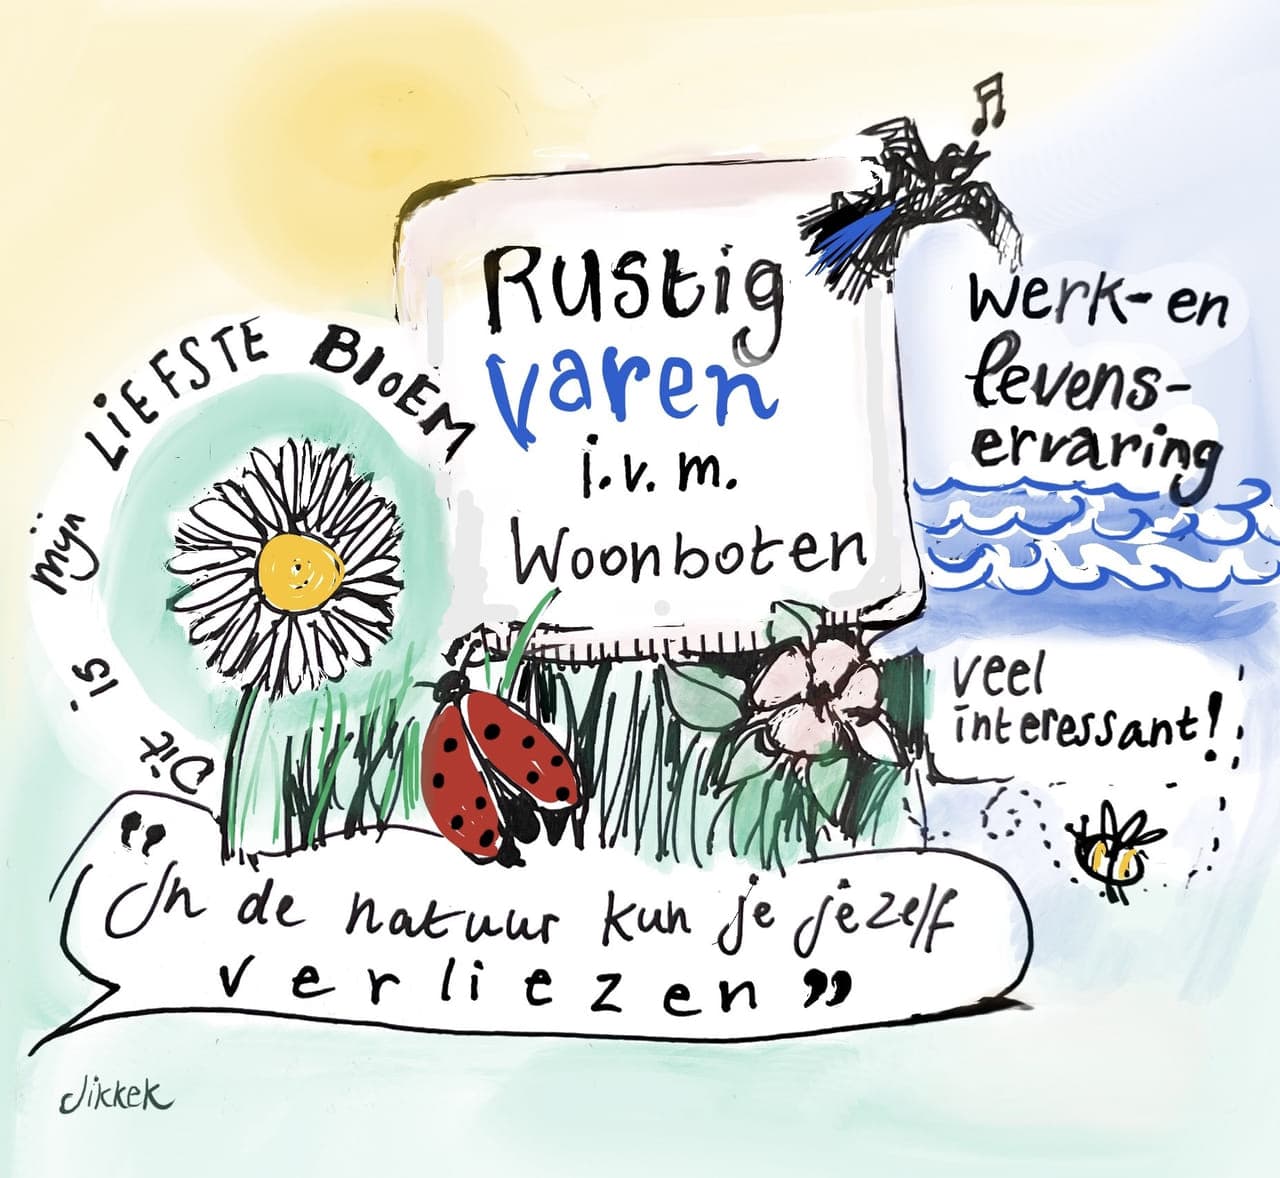 Rustig
varen
i.v.m.
Woonboten
Werk- en
levens-
ervaring
veel
interessant!
Dit is mijn LIEFSTE BLOEM
“In de natuur kun je jezelf
verliezen”
Jikkek